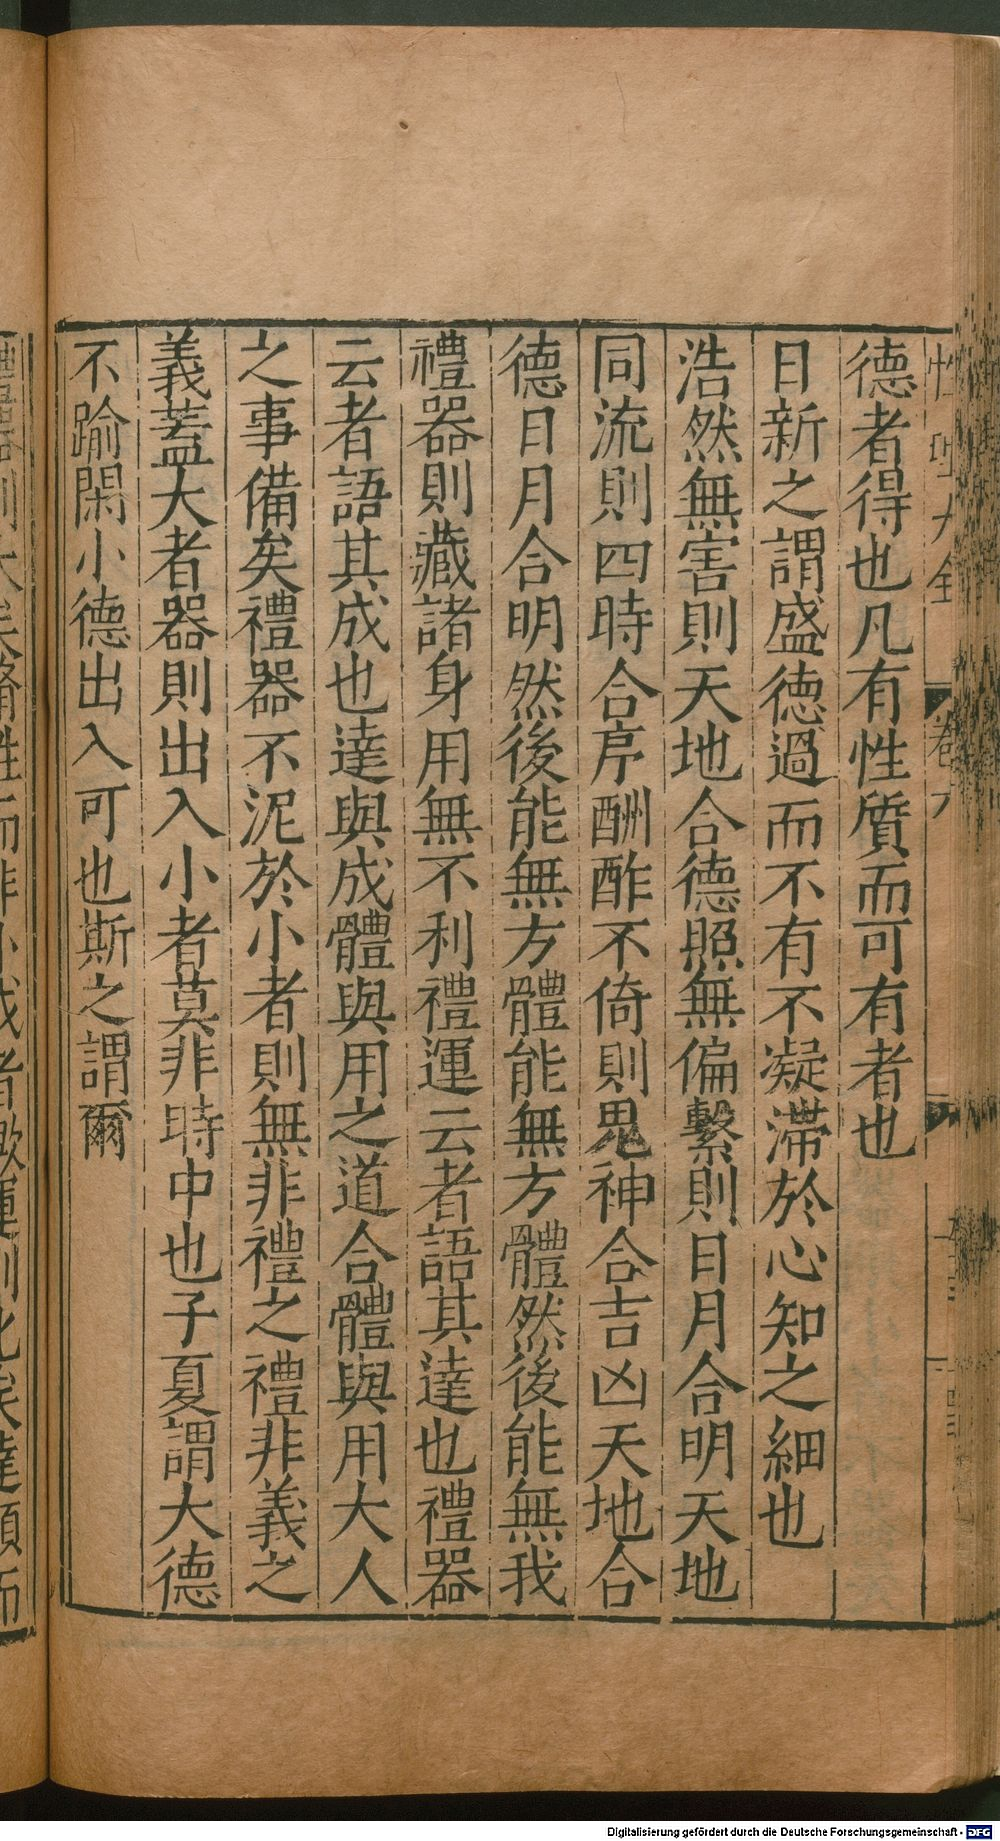 德者得也凡有性質而可有者也
日新之謂盛德過而不有不凝滯於心知之細也
浩然無害則天地合德照無偏繫則日月合明天地
同流則四時合序酬酢不倚則鬼神合吉凶天地合
德日月合明然後能無方體能無方體然後能無我
禮器則藏諸身用無不利禮運云者語其達也禮器
云者語其成也達與成體與用之道合體與用大人
之事備矣禮器不泥於小者則無非禮之禮非義之
義蓋大者器則出入小者莫非時中也子夏謂大德
不踰閑小德出入可也斯之謂爾
Digitalisierung gefördert durch die Deutsche Forschungsgemeinschaft - DFG